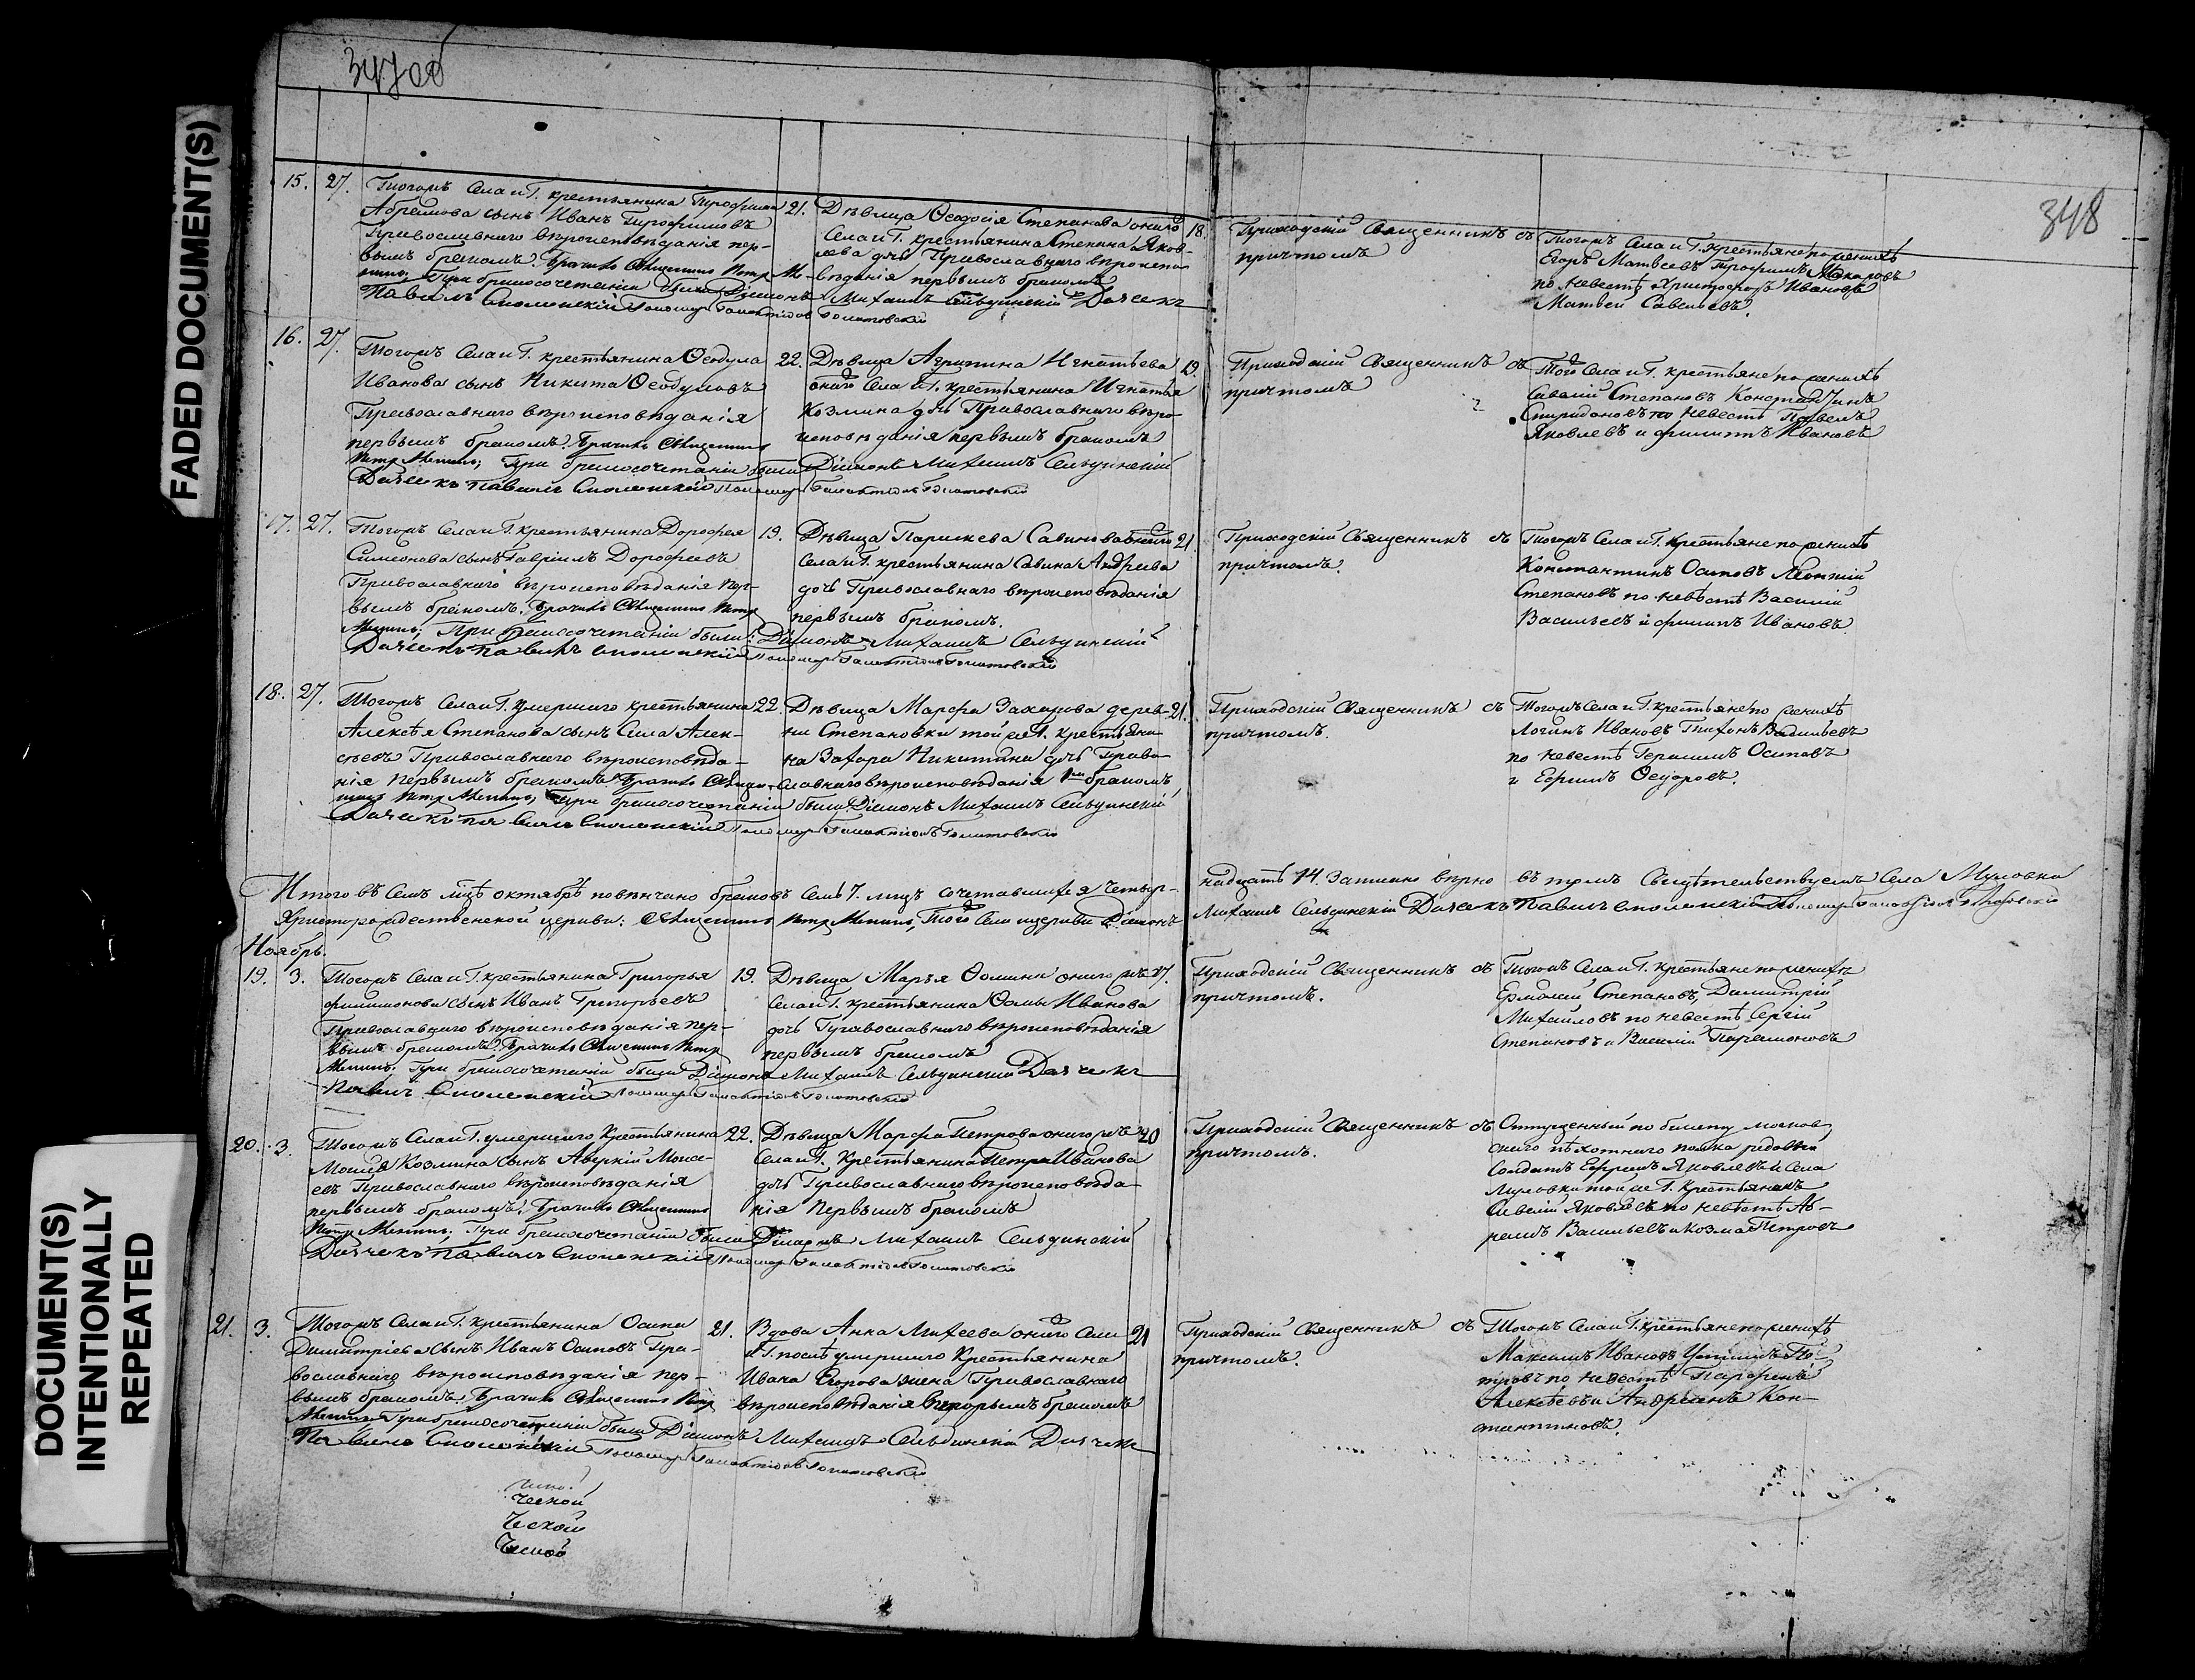 FADED DOCUMENT(S)
DOCUMENT(S)
INTENTIONALLY
REPEATED
348
15. 27. Тогожъ Села и Г. крестьянина Трофима
Абрамова сынъ Иванъ Трофимовъ
Православнаго вѣроисповѣданія пер-
вымъ бракомъ.
При бракосочетаніи были Діаконъ Михаилъ Сельдинскій Дьячекъ
Павелъ Смоленскій Пономарь
21. Дѣвица Ѳеодосія Степанова онаго
Села и Г. крестьянина Степана Яков-
лева дочь Православнаго вѣроиспо-
вѣданія первымъ бракомъ
18. Приходскій Священникъ съ
причтомъ
Тогожъ Села и Г. крестьяне по женихѣ
Егоръ Матвеевъ Трофимъ Макаровъ
по невестѣ Христофоръ Ивановъ
Матвей Савельевъ.
16. 27. Тогожъ Села и Г. крестьянина Ѳеодула
Иванова сынъ Никита Ѳеодуловъ
Православнаго вѣроисповѣданія
первымъ бракомъ.
При бракосочетаніи были Діаконъ Михаилъ Сельдинскій
Дьячекъ Павелъ Смоленскій Пономарь
22. Дѣвица Агрипина Игнатьева
онаго Села и Г. крестьянина Игнатья
Козмина дочь Православнаго вѣро-
исповѣданія первымъ бракомъ
19. Приходскій Священникъ съ
причтомъ
Того Села и Г. крестьяне по женихѣ
Савелій Степановъ Константинъ
Спиридоновъ по невестѣ Павелъ
Яковлевъ и Филипъ Ивановъ
17. 27. Тогожъ Села и Г. крестьянина Дорофея
Симеонова сынъ Гавріилъ Дорофеевъ
Православнаго вѣроисповѣданія пер-
вымъ бракомъ.
При бракосочетаніи были: Діаконъ Михаилъ Сельдинскій
Дьячекъ Павелъ Смоленскій Пономарь
19. Дѣвица Параскева Савинова онаго
Села и Г. крестьянина Савина Андреева
дочь Православнаго вѣроисповѣданія
первымъ бракомъ.
21. Приходскій Священникъ съ
причтомъ.
Тогожъ Села и Г. крестьяне по женихѣ
Константинъ Осиповъ Леонтій
Степановъ по невѣстѣ Василій
Васильевъ и Филипъ Ивановъ.
18. 27. Тогожъ Села и Г. умершаго крестьянина
Алексѣя Степанова сынъ Сила Алек-
сѣевъ Православнаго вѣроисповѣда-
нія первымъ бракомъ.
При бракосочетаніи были Діаконъ Михаилъ Сельдинскій
Дьячекъ Павелъ Смоленскій Пономарь
22. Дѣвица Марфа Захарова дерев-
ни Степановки той же Г. крестьяни-
на Захара Никитина дочь Право-
славнаго вѣроисповѣданія 1мъ бракомъ
21. Приходскій Священникъ съ
причтомъ.
Тогожъ Села и Г. крестьяне по женихѣ
Логинъ Ивановъ Тихонъ Васильевъ
по невестѣ Герасимъ Осиповъ
и Ефимъ Ѳеодоровъ.
Итого въ семъ мцѣ октябрѣ повѣнчано браковъ семь 7. лицъ сочетавшихся четыр-
надцать 14. Записано вѣрно въ томъ Свидѣтельствуемъ Села
Христорождественской церкви: Того Села церкви Діаконъ
Михаилъ Сельдинскій Дьячекъ Павелъ Смоленскій Пономарь
Ноябрь.
19. 3. Тогожъ Села и Г. крестьянина Григорья
Филимонова сынъ Иванъ Григорьевъ
Православнаго вѣроисповѣданія пер-
вымъ бракомъ.
При бракосочетаніи были Діаконъ Михаилъ Сельдинскій Дьячекъ
Павелъ Смоленскій Пономарь
19. Дѣвица Марья Ѳомина онаго жъ
Села и Г. крестьянина Ѳомы Иванова
дочь Православнаго вѣроисповѣданія
первымъ бракомъ
17. Приходскій Священникъ съ
причтомъ.
Тогожъ Села и Г. крестьяне по женихѣ
Ермолай Степановъ, Димитрій
Михайловъ по невестѣ Сергій
Степановъ и Василій Парамоновъ
20. 3. Тогожъ Села и Г. умершаго крестьянина
Моисея Козмина сынъ Аверкій Моисе-
евъ Православнаго вѣроисповѣданія
первымъ бракомъ.
При бракосочетаніи были Діаконъ Михаилъ Сельдинскій
Дьячекъ Павелъ Смоленскій Пономарь
22. Дѣвица Марфа Петрова онаго жъ
Села и Г. крестьянина Петра Иванова
дочь Православнаго вѣроисповѣда-
нія первымъ бракомъ
20 Приходскій Священникъ съ
причтомъ.
Отпущенный по билету москов
скаго пѣхотнаго полка рядовой
Солдатъ Ефремъ Яковлевъ и Села
той же Г. крестьянинъ
Савелій Яковлевъ по невѣстѣ Аб-
рамъ Васильевъ и Козма Петровъ
21. 3. Тогожъ Села и Г. крестьянина Осипа
Димитріева сынъ Иванъ Осиповъ Пра-
вославнаго вѣроисповѣданія пер-
вымъ бракомъ.
При бракосочетаніи были Діаконъ Михаилъ Сельдинскій Дьячекъ
Павелъ Смоленскій Пономарь
21. Вдова Анна Михеева онаго Села
и Г. послѣ умершаго крестьянина
Ивана Егорова жена Православнаго
вѣроисповѣданія вторымъ бракомъ
21 Приходскій Священникъ съ
причтомъ.
Тогожъ Села и Г. крестьяне по женихѣ
Максимъ Ивановъ Устинъ Пе-
тровъ по невестѣ Парфенъ
Алексѣевъ и Андреянъ Кон-
стантиновъ.
ческой
ческой